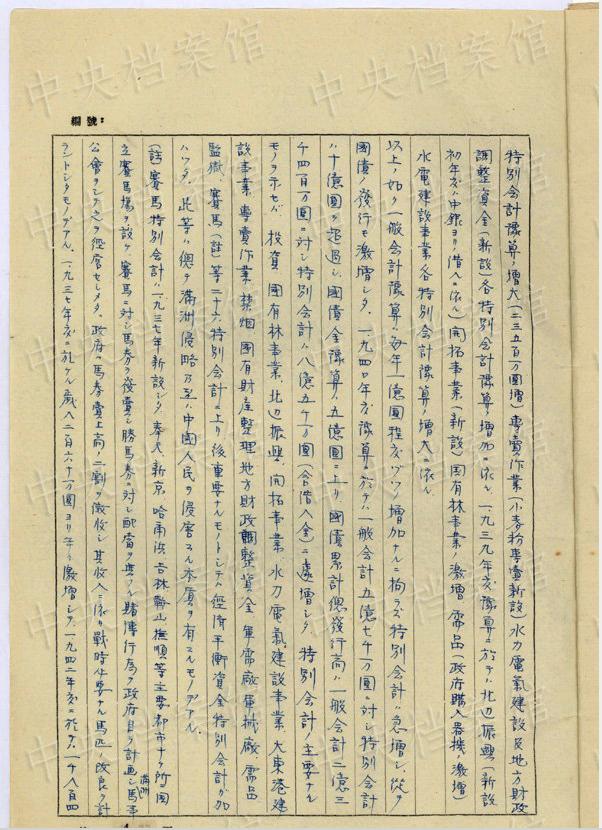 中央档案馆
編號：
特別会計豫算ノ増大(二三五百万圓増)専賣作業(小麦粉専賣新設)水力電氣建設及地方財政
調整資金新設)各特別会計豫算ノ増加ニ依ル、一九三九年度豫算ニ於テハ北辺振興(新設
初年度ハ中銀ヨリ借入ニ依ル)開拓事業(新設)国有林事業ノ激増 需品(政府購入器機ノ激増)
水電建設事業各特別会計豫算ノ増大ニ依ル
以上ノ如ク一般会計豫算ノ毎年一億圓程度ヅツノ増加ナルニ拘ラズ特別会計ハ急増シ、從ヲ
國債ノ發行モ激増シタ、一九四〇年度豫算ニ於テハ一般会計五億七千万圓ニ対シ特別会計
八十億圓ヲ超過シ、國債金豫算ノ五億圓ニ上リ國債累計總發行高ハ一般会計二億三
千四百万圓ニ対シ特別会計ハ八億五千万圓(合借入金)ニ遞増シタ、特別会計ノ主要ナル
モノヲ示セバ、投資、國有林事業、北辺振興、開拓事業、水力電氣建設事業、大東港建
設事業、専賣作業、禁烟、國有財産整理、地方財政調整資金、軍需廠、軍械廠、需品
監獄、賽馬(註)等二十六特別会計ニ上リ後重要ナルモノトシテハ經済平衡資金特別会計ガ加
ハツタ、此等ハ總テ滿洲侵略乃至ハ中國人民ヲ侵害スル本質ヲ有スルモノデアル、
(註)賽馬特別会計ハ一九三七年新設シタ、奉天、新京、哈爾濱、吉林、鞍山、撫順等主要都市十ヶ所ニ國
立賽馬場ヲ設ケ賽馬ニ対シ馬券ヲ發賣シ勝馬券ニ対シ配當ヲ與ヘル賭博行為ヲ政府自ラ計画シ滿洲馬事
公會ヲシテ之ヲ經營セシメタ、政府ハ馬券賣上高ノ二割ヲ徴收シ其收入ニ依リ戰時必要ナル馬匹ノ改良ヲ計
ラントシタモノデアル、一九三七年度ニ於ケル歳入二百六十万圓ヨリ年々激増シタ、一九四二年度ニ於テハ一千八百四